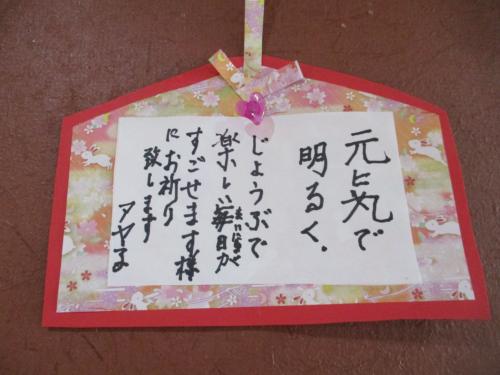 元気で
明るく.
じょうぶで
楽しい毎日が
まいにち
すごせます様
にお祈り
致します
アヤ子